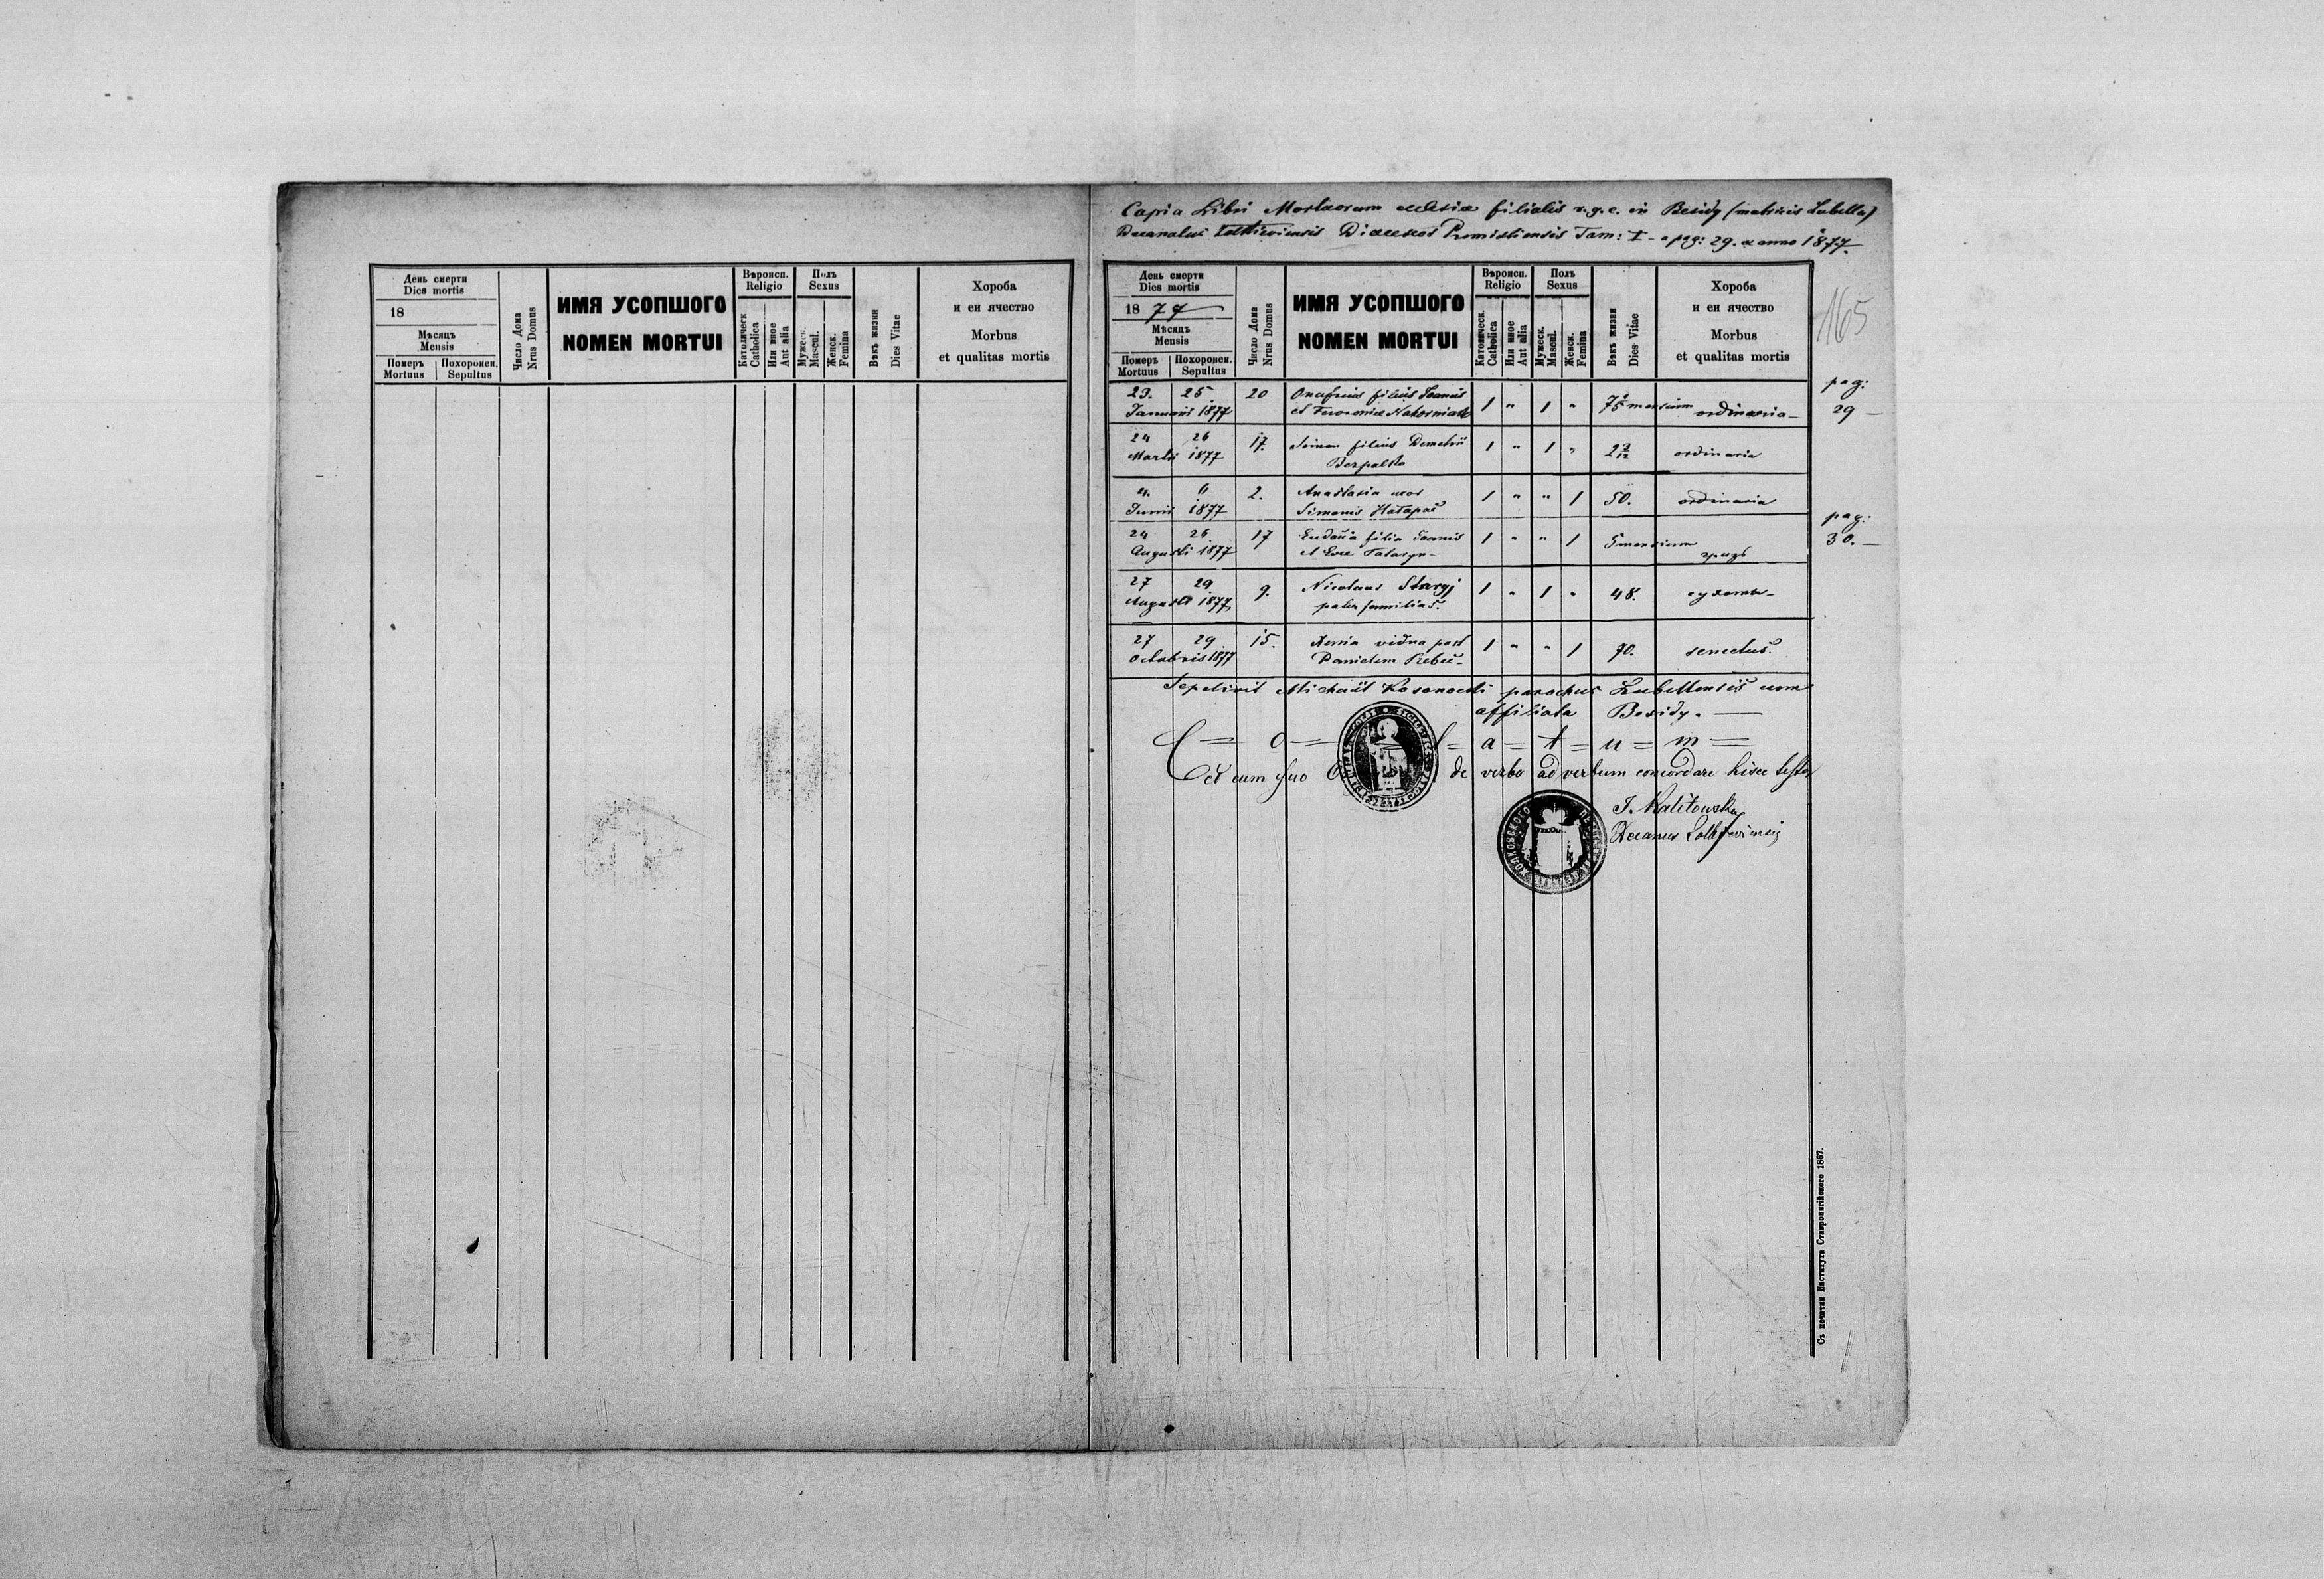 День смерти
Dies mortis
18
Мѣсяць
Mensis
Померъ
Mortuus
Похоронен.
Sepultus
Число Дома
Nrus Domus
ИМЯ УСОПШОГО
NOMEN MORTUI
Вѣроисп.
Religio
Католическ
Catholica
Или иное
Aut alia
Полъ
Sexus
Мужеск.
Mascul.
Женск.
Femina
Вѣкъ жизни
Dies Vitae
Хороба
и еи ячество
Morbus
et qualitas mortis
Copia Libri Mortuorum ecclesiæ filialis r. g. c. in Besidy (matricis Lubella)
Decanatus Diæceseos Premisliensis Tom: I - pag: 29. ex anno 1877.
165
День смерти
Dies mortis
1877
Мѣсяць
Mensis
Померъ
Mortuus
Похоронен.
Sepultus
Число Дома
Nrus Domus
ИМЯ УСОПШОГО
NOMEN MORTUI
Вѣроисп.
Religio
Католическ.
Catholica
Или иное
Aut alia
Полъ
Sexus
Мужеск.
Mascul.
Женск.
Femina
Вѣкъ жизни
Dies Vitae
Хороба
и еи ячество
Morbus
et qualitas mortis
pag:
23. 25 20 Onufrius filius Joannis
Januarii 1877 et 1 " 1 " mensium ordinaria — 29 —
24 26 17. Simon filius Demetrii 1 " 1 "
Martii 1877 2 ordinaria
4. 6 2. Anastasia uxor 1 " " 1 50. ordinaria
Junii 1877 Simonis
pag:
24 26 17 filia Joannis 1 " " 1 5 mensium
Augusti 1877 et Evae 30. —
27 29 9. Nicolaus Staryj 1 " 1 " 48.
Augusti 1877 pater familias.
27 29 15. Xenia vidua post 1 " " 1 70. senectus.
Octobris 1877 Danielem
Sepelivit Michaël parochus Lubellensis cum
affiliata Besidy. —
l = a = t = u = m =
et cum suo de verbo ad verbum concordare hisce testor
J. Kalitowsky
Decanus
Съ печатни Института Ставропигійского 1867.